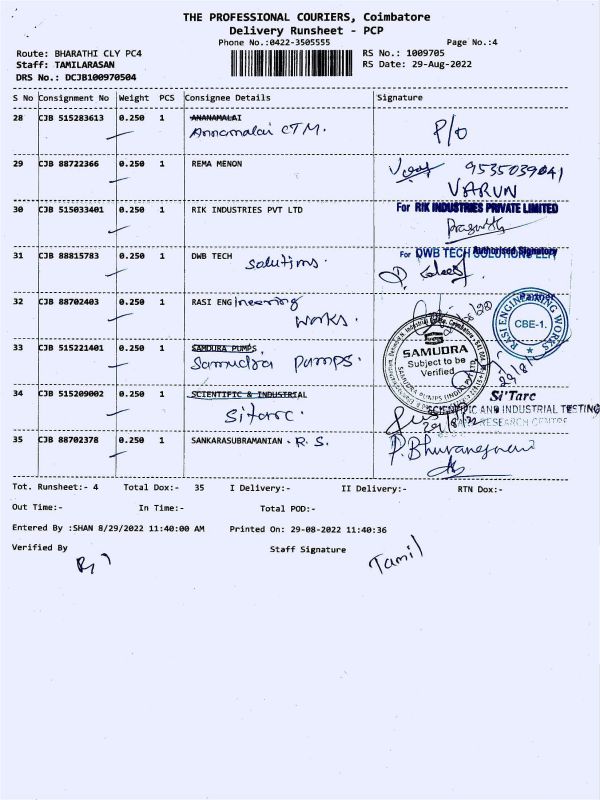 THE PROFESSIONAL COURIERS, Coimbatore
Delivery Runsheet - PCP
Phone No.:0422-3505555 Page No.:4
Route: BHARATHI CLY PC4 RS No.: 1009705
Staff: TAMILARASAN RS Date: 29-Aug-2022
DRS No.: DCJB100970504
S No Consignment No Weight PCS Consignee Details Signature
28 CJB 515283613 0.250 1 ANANAMALAI
Annamalai CTM. P/o
29 CJB 88722366 0.250 1 REMA MENON 9535039041
VARUN
30 CJB 515033401 0.250 1 RIK INDUSTRIES PVT LTD For RIK INDUSTRIES PRIVATE LIMITED
Authorised Signatory
31 CJB 88815783 0.250 1 DWB TECH Solutions. For DWB TECH SOLUTIONS LLP
Partner
32 CJB 88702403 0.250 1 RASI ENGineering
works.
RASI ENGINEERING WORKS
CBE-1.
33 CJB 515221401 0.250 1 SAMDURA PUMPS
Samudra Pumps.
SAMUDRA
Subject to be
Verified
29/8/
34 CJB 515209002 0.250 1 SCIENTIFIC & INDUSTRIAL
Sitarc. Si'Tarc
SCIENTIFIC AND INDUSTRIAL TESTING
RESEARCH CENTRE
29/8/22
35 CJB 88702378 0.250 1 SANKARASUBRAMANIAN - R. S. P. Bhuvaneswari
Tot. Runsheet:- 4 Total Dox:- 35 I Delivery:- II Delivery:- RTN Dox:-
Out Time:- In Time:- Total POD:-
Entered By :SHAN 8/29/2022 11:40:00 AM Printed On: 29-08-2022 11:40:36
Verified By Staff Signature
Tamil